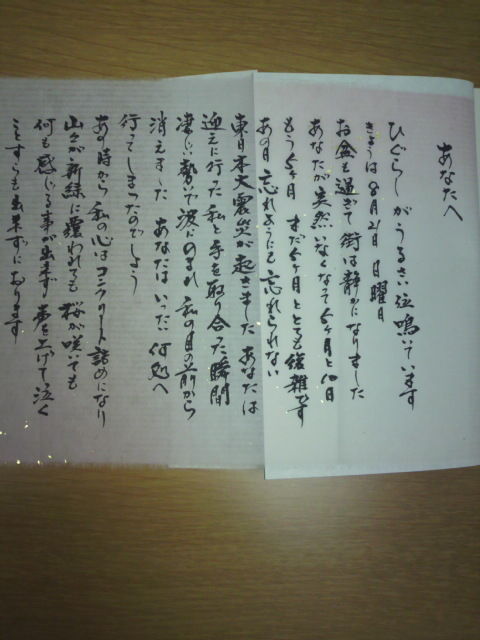 あなたへ
ひぐらしがうるさい位鳴いています
きょうは8月21日 日曜日
お盆も過ぎて 街は静かになりました
あなたが突然いなくなって5ヶ月と10日
もう5ヶ月 まだ5ヶ月 とても複雑です
あの日 忘れようにも忘れられない
東日本大震災が起きました あなたは
迎えに行った私と手を取り合った瞬間
凄い勢いで波にのまれ 私の目の前から
消えました あなたはいったい何処へ
行ってしまったのでしょう
あの時から 私の心はコンクリート詰めになり
山々が新緑に纏われても 桜が咲いても
何も感じる事が出来ず 声を上げて泣く
ことすらも出来ずにおります